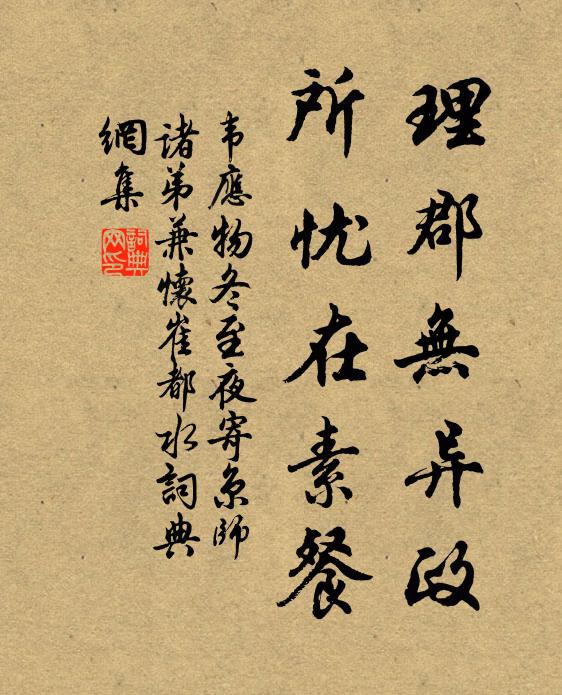 理郡無异政
所忧在素餐
韦應物冬至夜寄京師
諸弟兼懷崔都水詞典
網集
詞典
网印